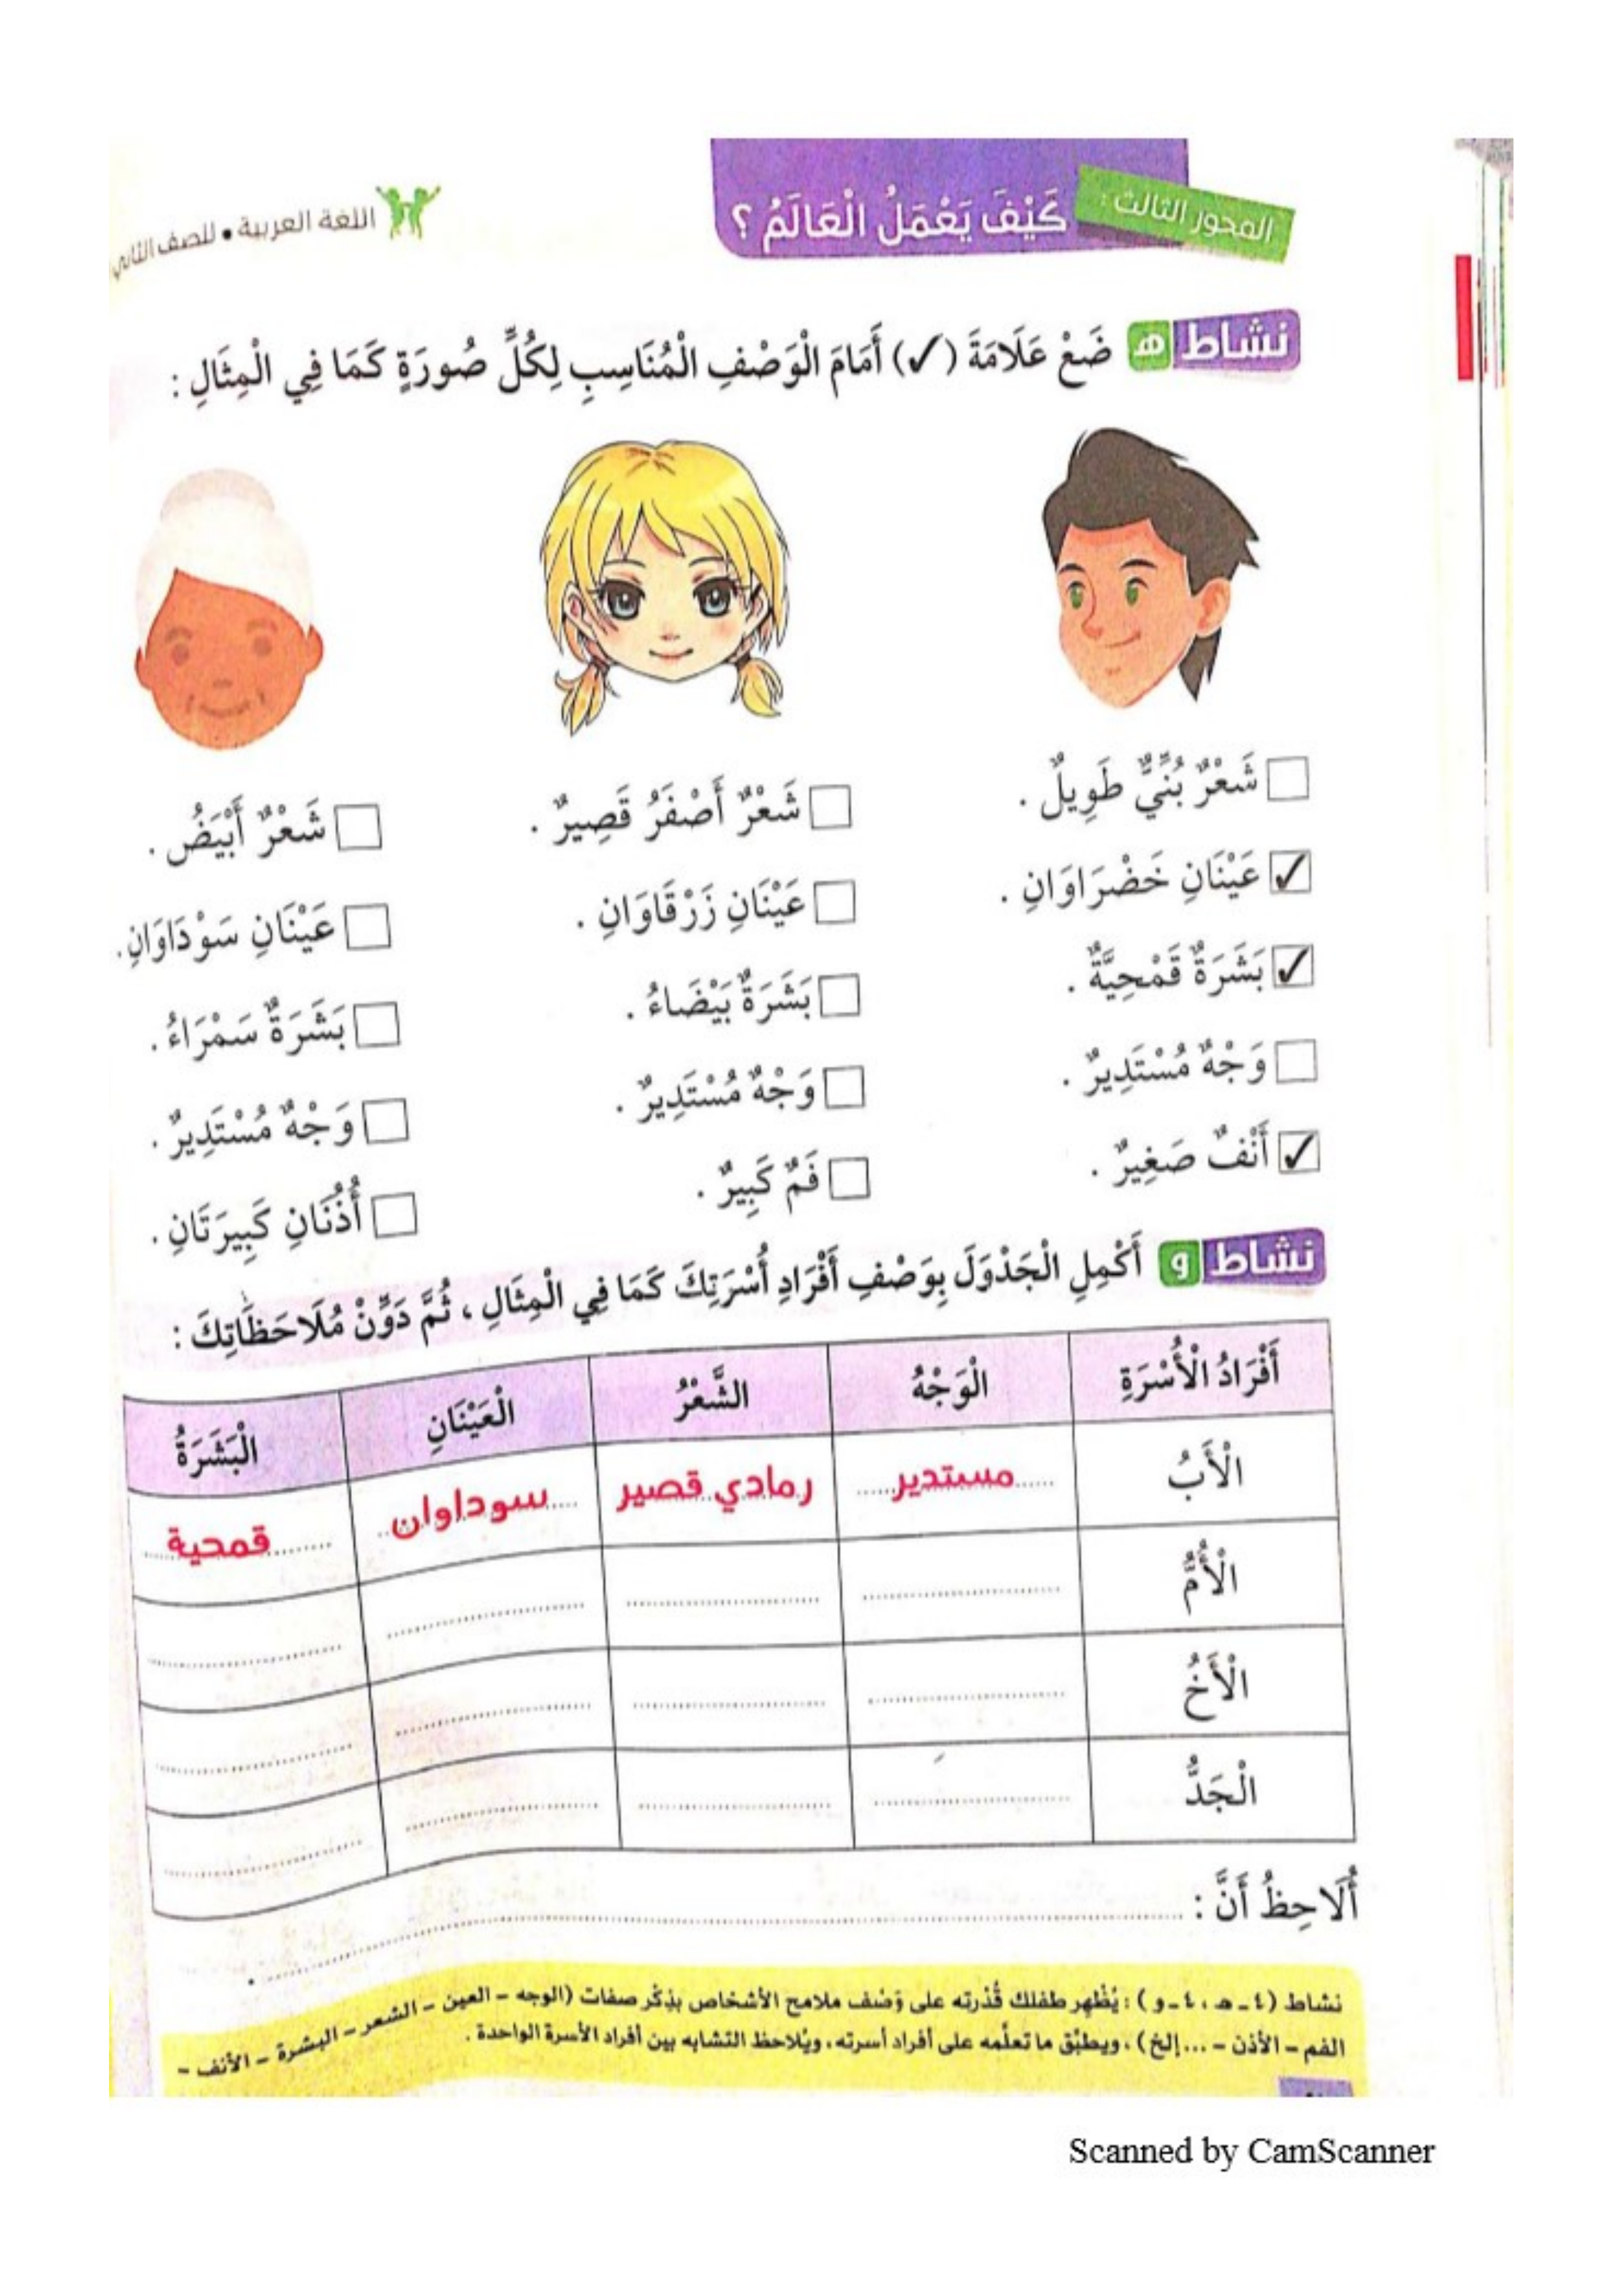 المحور الثالث : كَيْفَ يَعْمَلُ الْعَالَمُ ؟
اللغة العربية • للصف الثاني
نشاط ه ضَعْ عَلَامَةَ (✓) أَمَامَ الْوَصْفِ الْمُنَاسِبِ لِكُلِّ صُورَةٍ كَمَا فِي الْمِثَالِ :
☐ شَعْرٌ بُنِّيٌّ طَوِيلٌ .
✓ عَيْنَانِ خَضْرَاوَانِ .
✓ بَشَرَةٌ قَمْحِيَّةٌ .
☐ وَجْهٌ مُسْتَدِيرٌ .
✓ أَنْفٌ صَغِيرٌ .
☐ شَعْرٌ أَصْفَرُ قَصِيرٌ .
☐ عَيْنَانِ زَرْقَاوَانِ .
☐ بَشَرَةٌ بَيْضَاءُ .
☐ وَجْهٌ مُسْتَدِيرٌ .
☐ فَمٌ كَبِيرٌ .
☐ شَعْرٌ أَبْيَضُ .
☐ عَيْنَانِ سَوْدَاوَانِ .
☐ بَشَرَةٌ سَمْرَاءُ .
☐ وَجْهٌ مُسْتَدِيرٌ .
☐ أُذُنَانِ كَبِيرَتَانِ .
نشاط و أَكْمِلِ الْجَدْوَلَ بِوَصْفِ أَفْرَادِ أُسْرَتِكَ كَمَا فِي الْمِثَالِ ، ثُمَّ دَوِّنْ مُلَاحَظَاتِكَ :
أَفْرَادُ الْأُسْرَةِ الْوَجْهُ الشَّعْرُ الْعَيْنَانِ الْبَشَرَةُ
الْأَبُ مستدير رمادي قصير سوداوان قمحية
الْأُمُّ
الْأَخُ
الْجَدُّ
أُلَاحِظُ أَنَّ : .
نشاط (٤ - ه ، ٤ - و) : يُظْهِر طفلك قُدْرته على وَصْف ملامح الأشخاص بذِكْر صفات (الوجه - العين - الشعر - البشرة - الأنف -
الفم - الأذن - ... إلخ) ، ويطبِّق ما تعلَّمه على أفراد أسرته ، ويُلاحظ التشابه بين أفراد الأسرة الواحدة .
Scanned by CamScanner